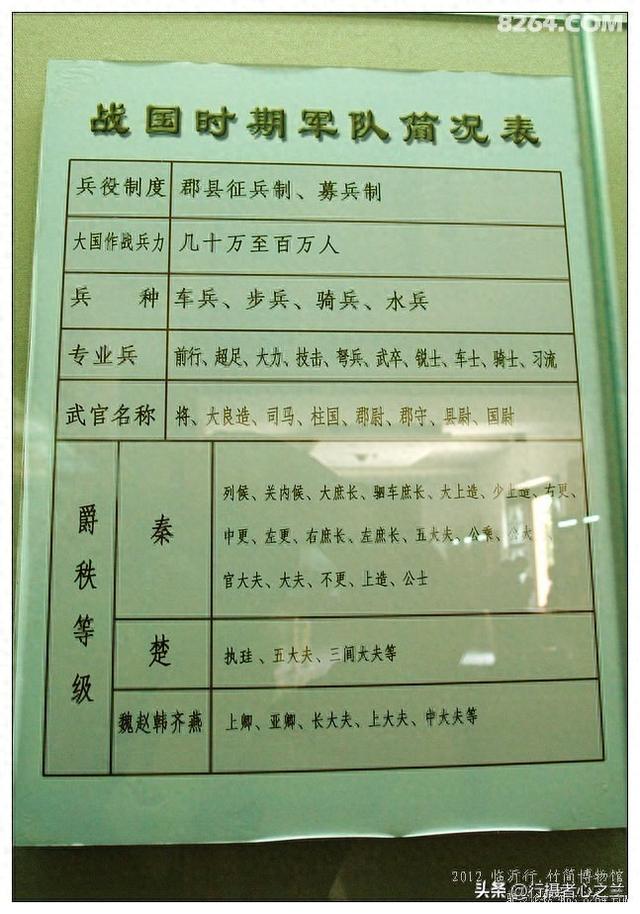 8264.COM
战国时期军队简况表
兵役制度 郡县征兵制、募兵制
大国作战兵力 几十万至百万人
兵 种 车兵、步兵、骑兵、水兵
专业兵 前行、超足、大力、技击、弩兵、武卒、锐士、车士、骑士、习流
武官名称 将、大良造、司马、柱国、郡尉、郡守、县尉、国尉
爵秩等级
秦
列侯、关内侯、大庶长、驷车庶长、大上造、少上造、右更、
中更、左更、右庶长、左庶长、五大夫、公乘、公大、
官大夫、大夫、不更、上造、公士
楚 执珪、五大夫、三闾大夫等
魏赵韩齐燕 上卿、亚卿、长大夫、上大夫、中大夫等
2012.临沂行.竹简博物馆
头条@行摄者心之兰